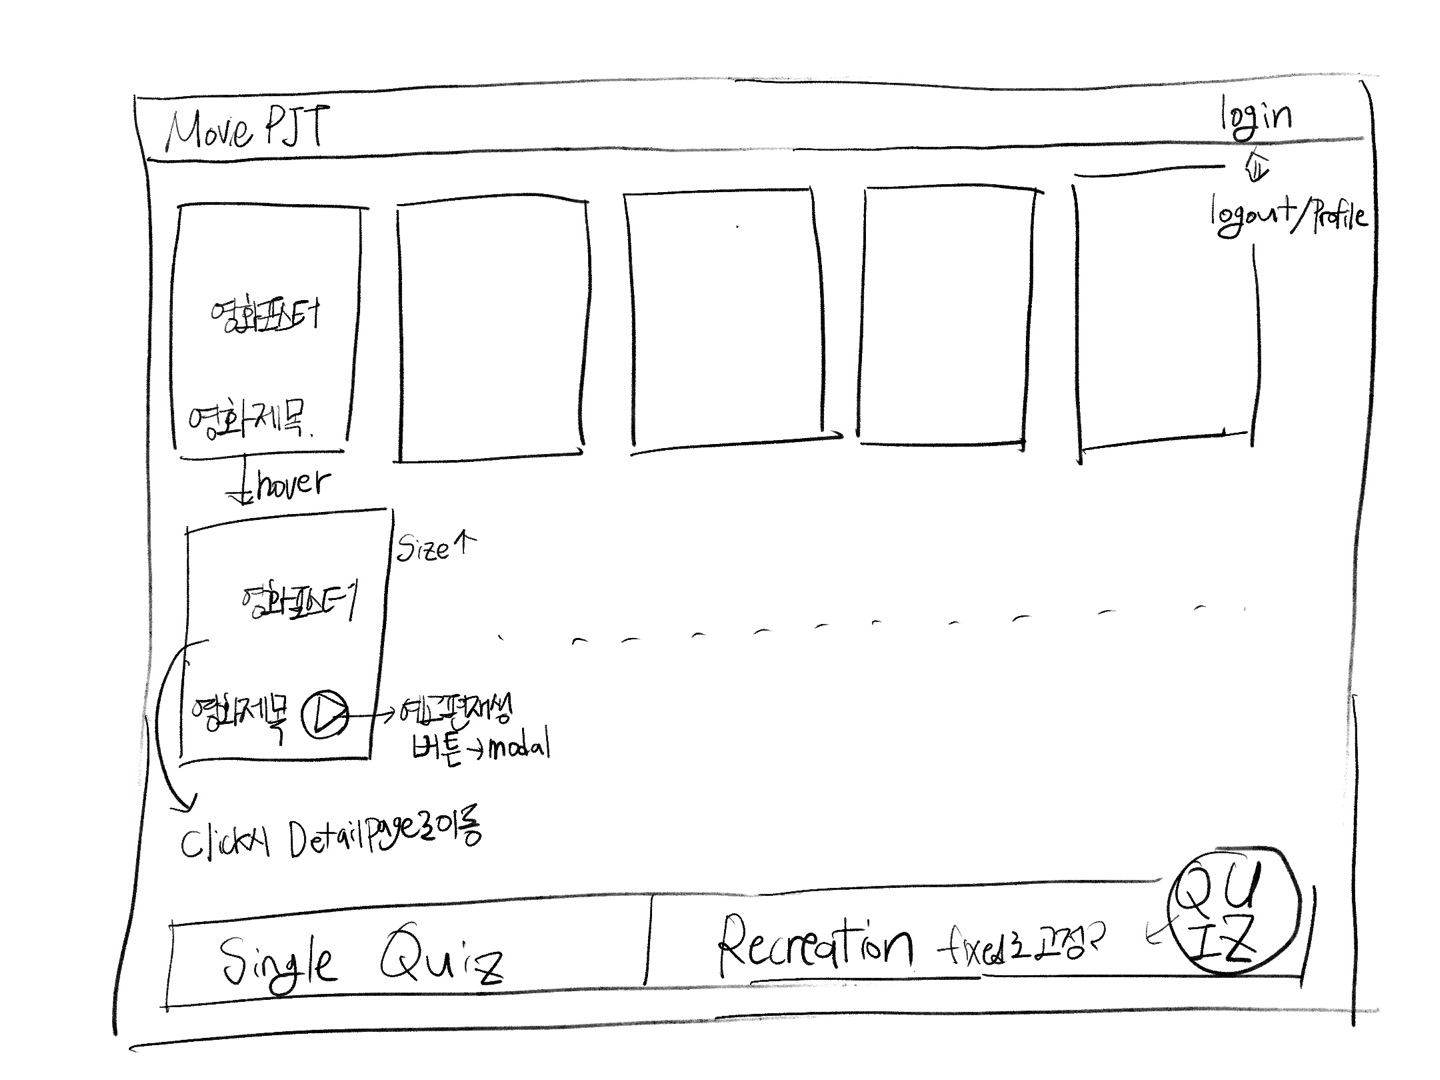 Movie PJT
login
logout/Profile
영화포스터
영화제목.
hover
Size↑
영화포스터
영화제목
예고편재생
버튼→modal
Click시 Detailpage로이동
Single Quiz
Recreation
fixed로 고정?
QU
IZ